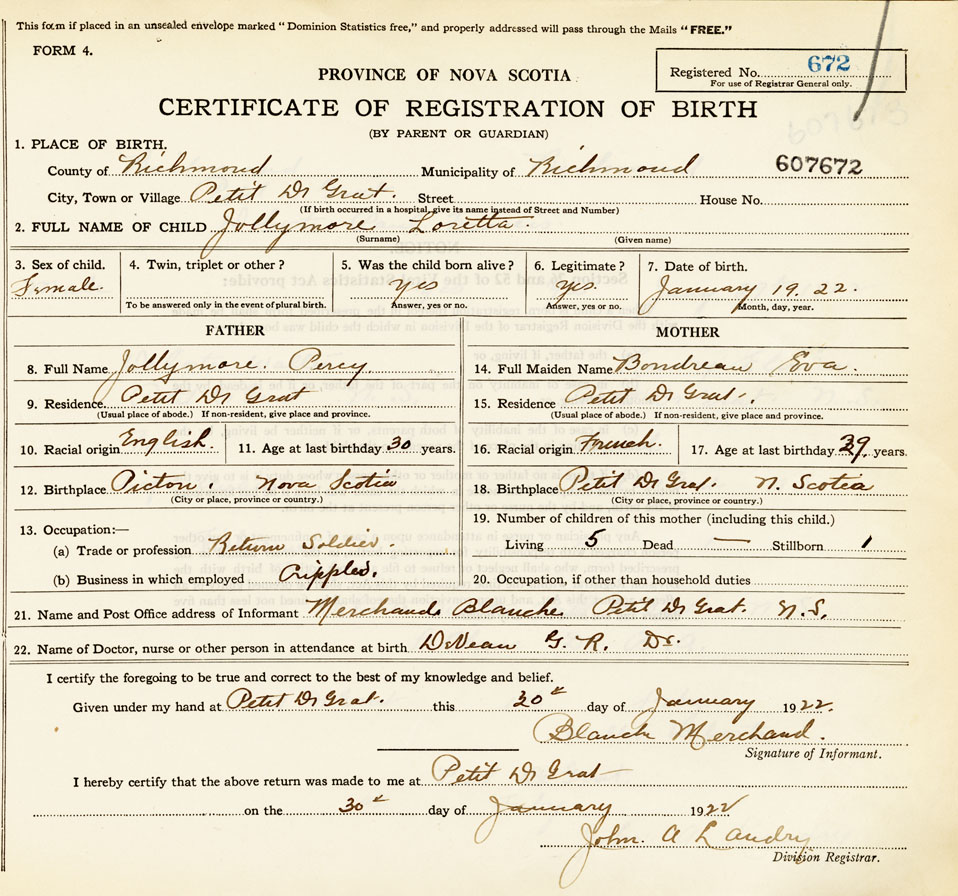 This form if placed in an unsealed envelope marked "Dominion Statistics free," and properly addressed will pass through the Mails "FREE."
FORM 4.
Registered No. 672
For use of Registrar General only.
PROVINCE OF NOVA SCOTIA
CERTIFICATE OF REGISTRATION OF BIRTH
(BY PARENT OR GUARDIAN)
607672
1. PLACE OF BIRTH.
County of Richmond Municipality of Richmond
City, Town or Village Petit De Grat. Street House No.
(If birth occurred in a hospital, give its name instead of Street and Number)
2. FULL NAME OF CHILD Jollymore Loretta.
(Surname) (Given name)
3. Sex of child. 4. Twin, triplet or other? 5. Was the child born alive? 6. Legitimate? 7. Date of birth.
Female. yes yes. January 19. 22.
To be answered only in the event of plural birth. Answer, yes or no. Answer, yes or no. Month, day, year.
FATHER
8. Full Name Jollymore. Percy.
9. Residence Petit De Grat
(Usual place of abode.) If non-resident, give place and province.
10. Racial origin English. 11. Age at last birthday 30 years.
12. Birthplace Picton, Nova Scotia
(City or place, province or country.)
13. Occupation:—
(a) Trade or profession Return Soldier.
(b) Business in which employed Crippled.
MOTHER
14. Full Maiden Name Boudreau Eva.
15. Residence Petit De Grat.
(Usual place of abode.) If non-resident, give place and province.
16. Racial origin French. 17. Age at last birthday 29, years.
18. Birthplace Petit De Grat. N. Scotia
(City or place, province or country.)
19. Number of children of this mother (including this child.)
Living 5 Dead — Stillborn 1
20. Occupation, if other than household duties
21. Name and Post Office address of Informant Merchand Blanche Petit De Grat. N.S.
22. Name of Doctor, nurse or other person in attendance at birth DeVeau G. R. Dr.
I certify the foregoing to be true and correct to the best of my knowledge and belief.
Given under my hand at Petit De Grat. this 30th day of January 1922.
Blanche Merchand.
Signature of Informant.
I hereby certify that the above return was made to me at Petit De Grat
on the 30th day of January 1922
John. A Landry
Division Registrar.